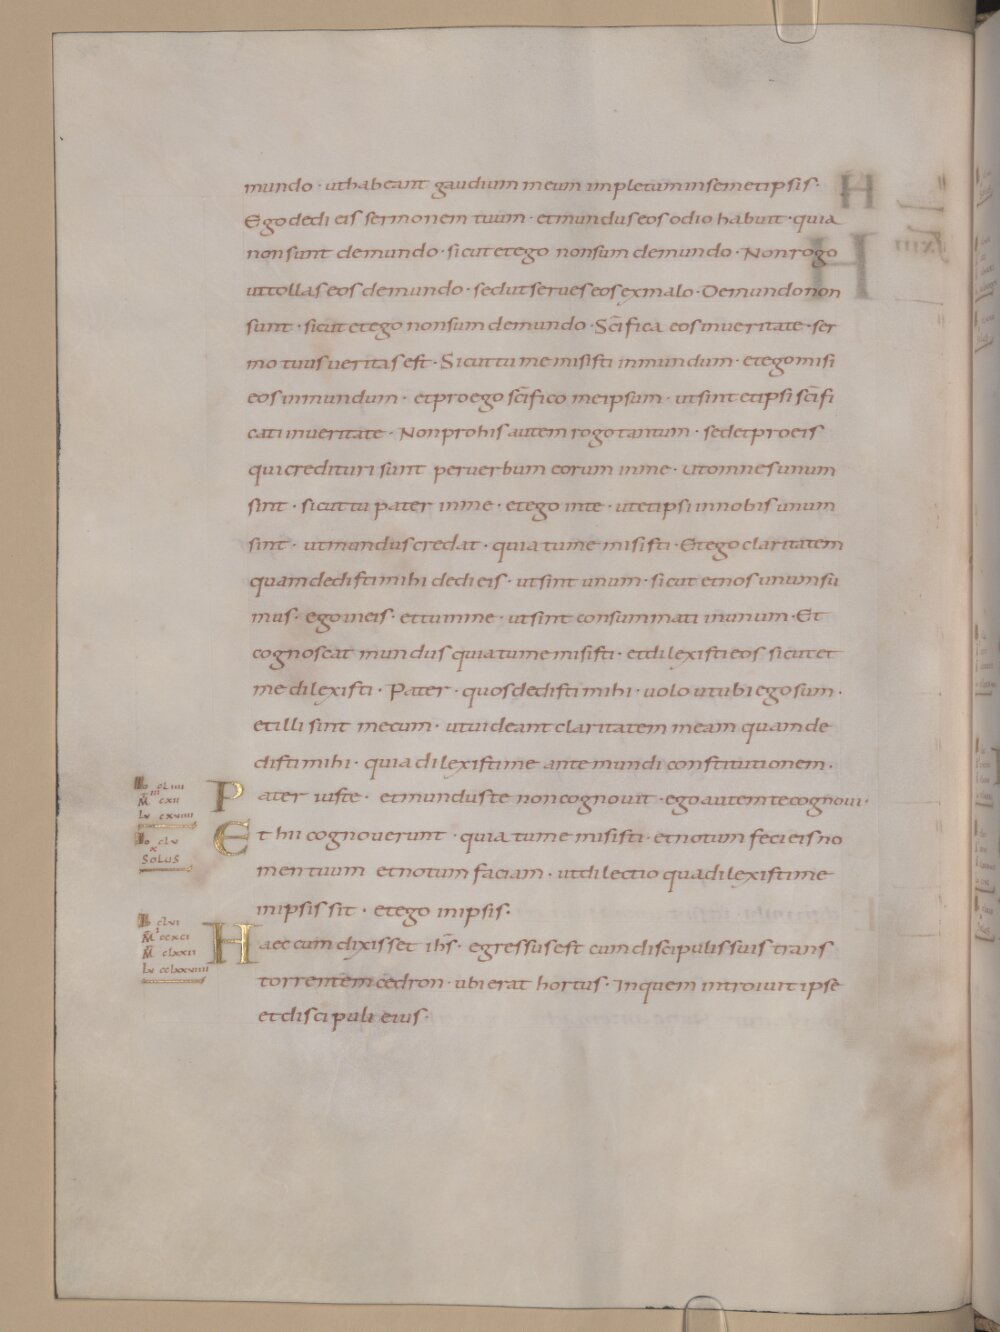 mundo · ut habeant gaudium meum impletum in semetipsis ·
Ego dedi eis sermonem tuum · et mundus eos odio habuit · quia
non sunt de mundo · sicut et ego non sum de mundo · Non rogo
ut tollas eos de mundo · sed ut serues eos ex malo · De mundo non
sunt · sicut et ego non sum de mundo · Sc̄ifica eos in ueritate · ser
mo tuus ueritas est · Sicut tu me misisti in mundum · et ego misi
eos in mundum · et pro ego sc̄ifico me ipsum · ut sint et ipsi sc̄ifi
cati in ueritate · Non pro his autem rogo tantum · sed et pro eis
qui credituri sunt per uerbum eorum in me · ut omnes unum
sint · sicut tu pater in me · et ego in te · ut et ipsi in nobis unum
sint · ut mundus credat · quia tu me misisti · Et ego claritatem
quam dedisti mihi dedi eis · ut sint unum · sicut et nos unum su
mus · ego in eis · et tu in me · ut sint consummati in unum · Et
cognoscat mundus quia tu me misisti · et dilexisti eos sicut et
me dilexisti · Pater · quos dedisti mihi · uolo ut ubi ego sum ·
et illi sint mecum · ut uideant claritatem meam quam de
disti mihi · quia dilexisti me ante mundi constitutionem ·
Pater iuste · et mundus te non cognouit · ego autem te cognoui ·
Et hii cognouerunt · quia tu me misisti · et notum feci eis no
men tuum et notum faciam · ut dilectio qua dilexisti me
in ipsis sit · et ego in ipsis ·
Haec cum dixisset ih̄s · egressus est cum discipulis suis trans
torrentem cedron · ubi erat hortus · In quem introiuit ipse
et discipuli eius ·
Io cliiii
iii
M̄ cxii
Lu cxuiiii
Io clu
x
SOLUS
Io clui
i
M̄ ccxci
M̄ clxxii
Lu cclxxuiiii